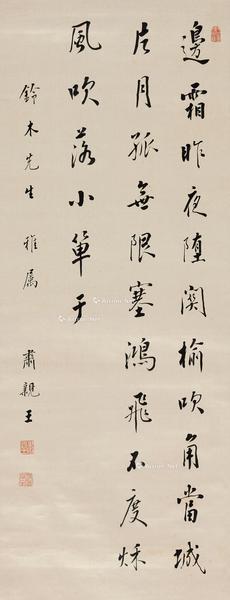 邊霜昨夜墮關榆吹角當城
片月孤無限塞鴻飛不度秌
風吹落小單于
鈴木先生 雅属
肅親王